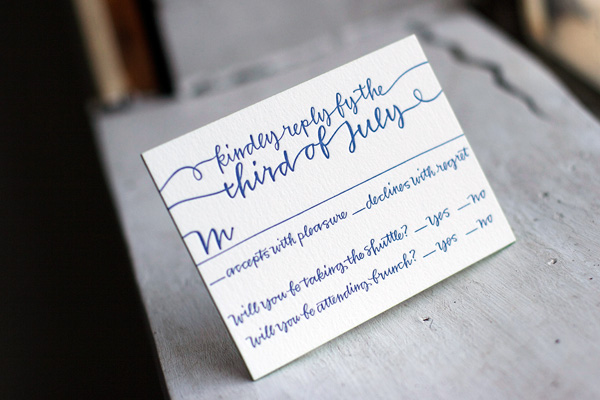 kindly reply by the
third of July
M
_accepts with pleasure _declines with regret
Will you be taking the shuttle? _yes _no
Will you be attending brunch? _yes _no